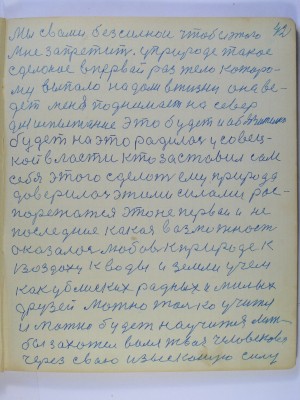 42
Мы с вами, безсилной чтобы этого
мне запретит. у природе такое
сделоное впервый раз тело которо-
му выпало на долю в жизни она ве-
дет меня поднимает на север
для испытание это будет и
будет на это радилася у совец-
кой власти кто заставил сам
себя этого сделат ему природа
доверилась этими силами рас-
поражатся это не первая и не
последние какая возможност
оказалас любов к природе к
воздоху к воды и земли учем
как у близких радных и милых
друзей можно толко учитис
и можно будет научится лиш-
бы захотел воля твоя человеков
через свою изысканую силу